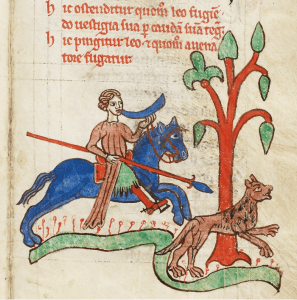 Hic ostenditur quom̄ leo fugiē
do vestigia sua ꝑ caudā suā teḡ:
Hic pingitur leo ⁊ quom̄ a vena
tore fugatur